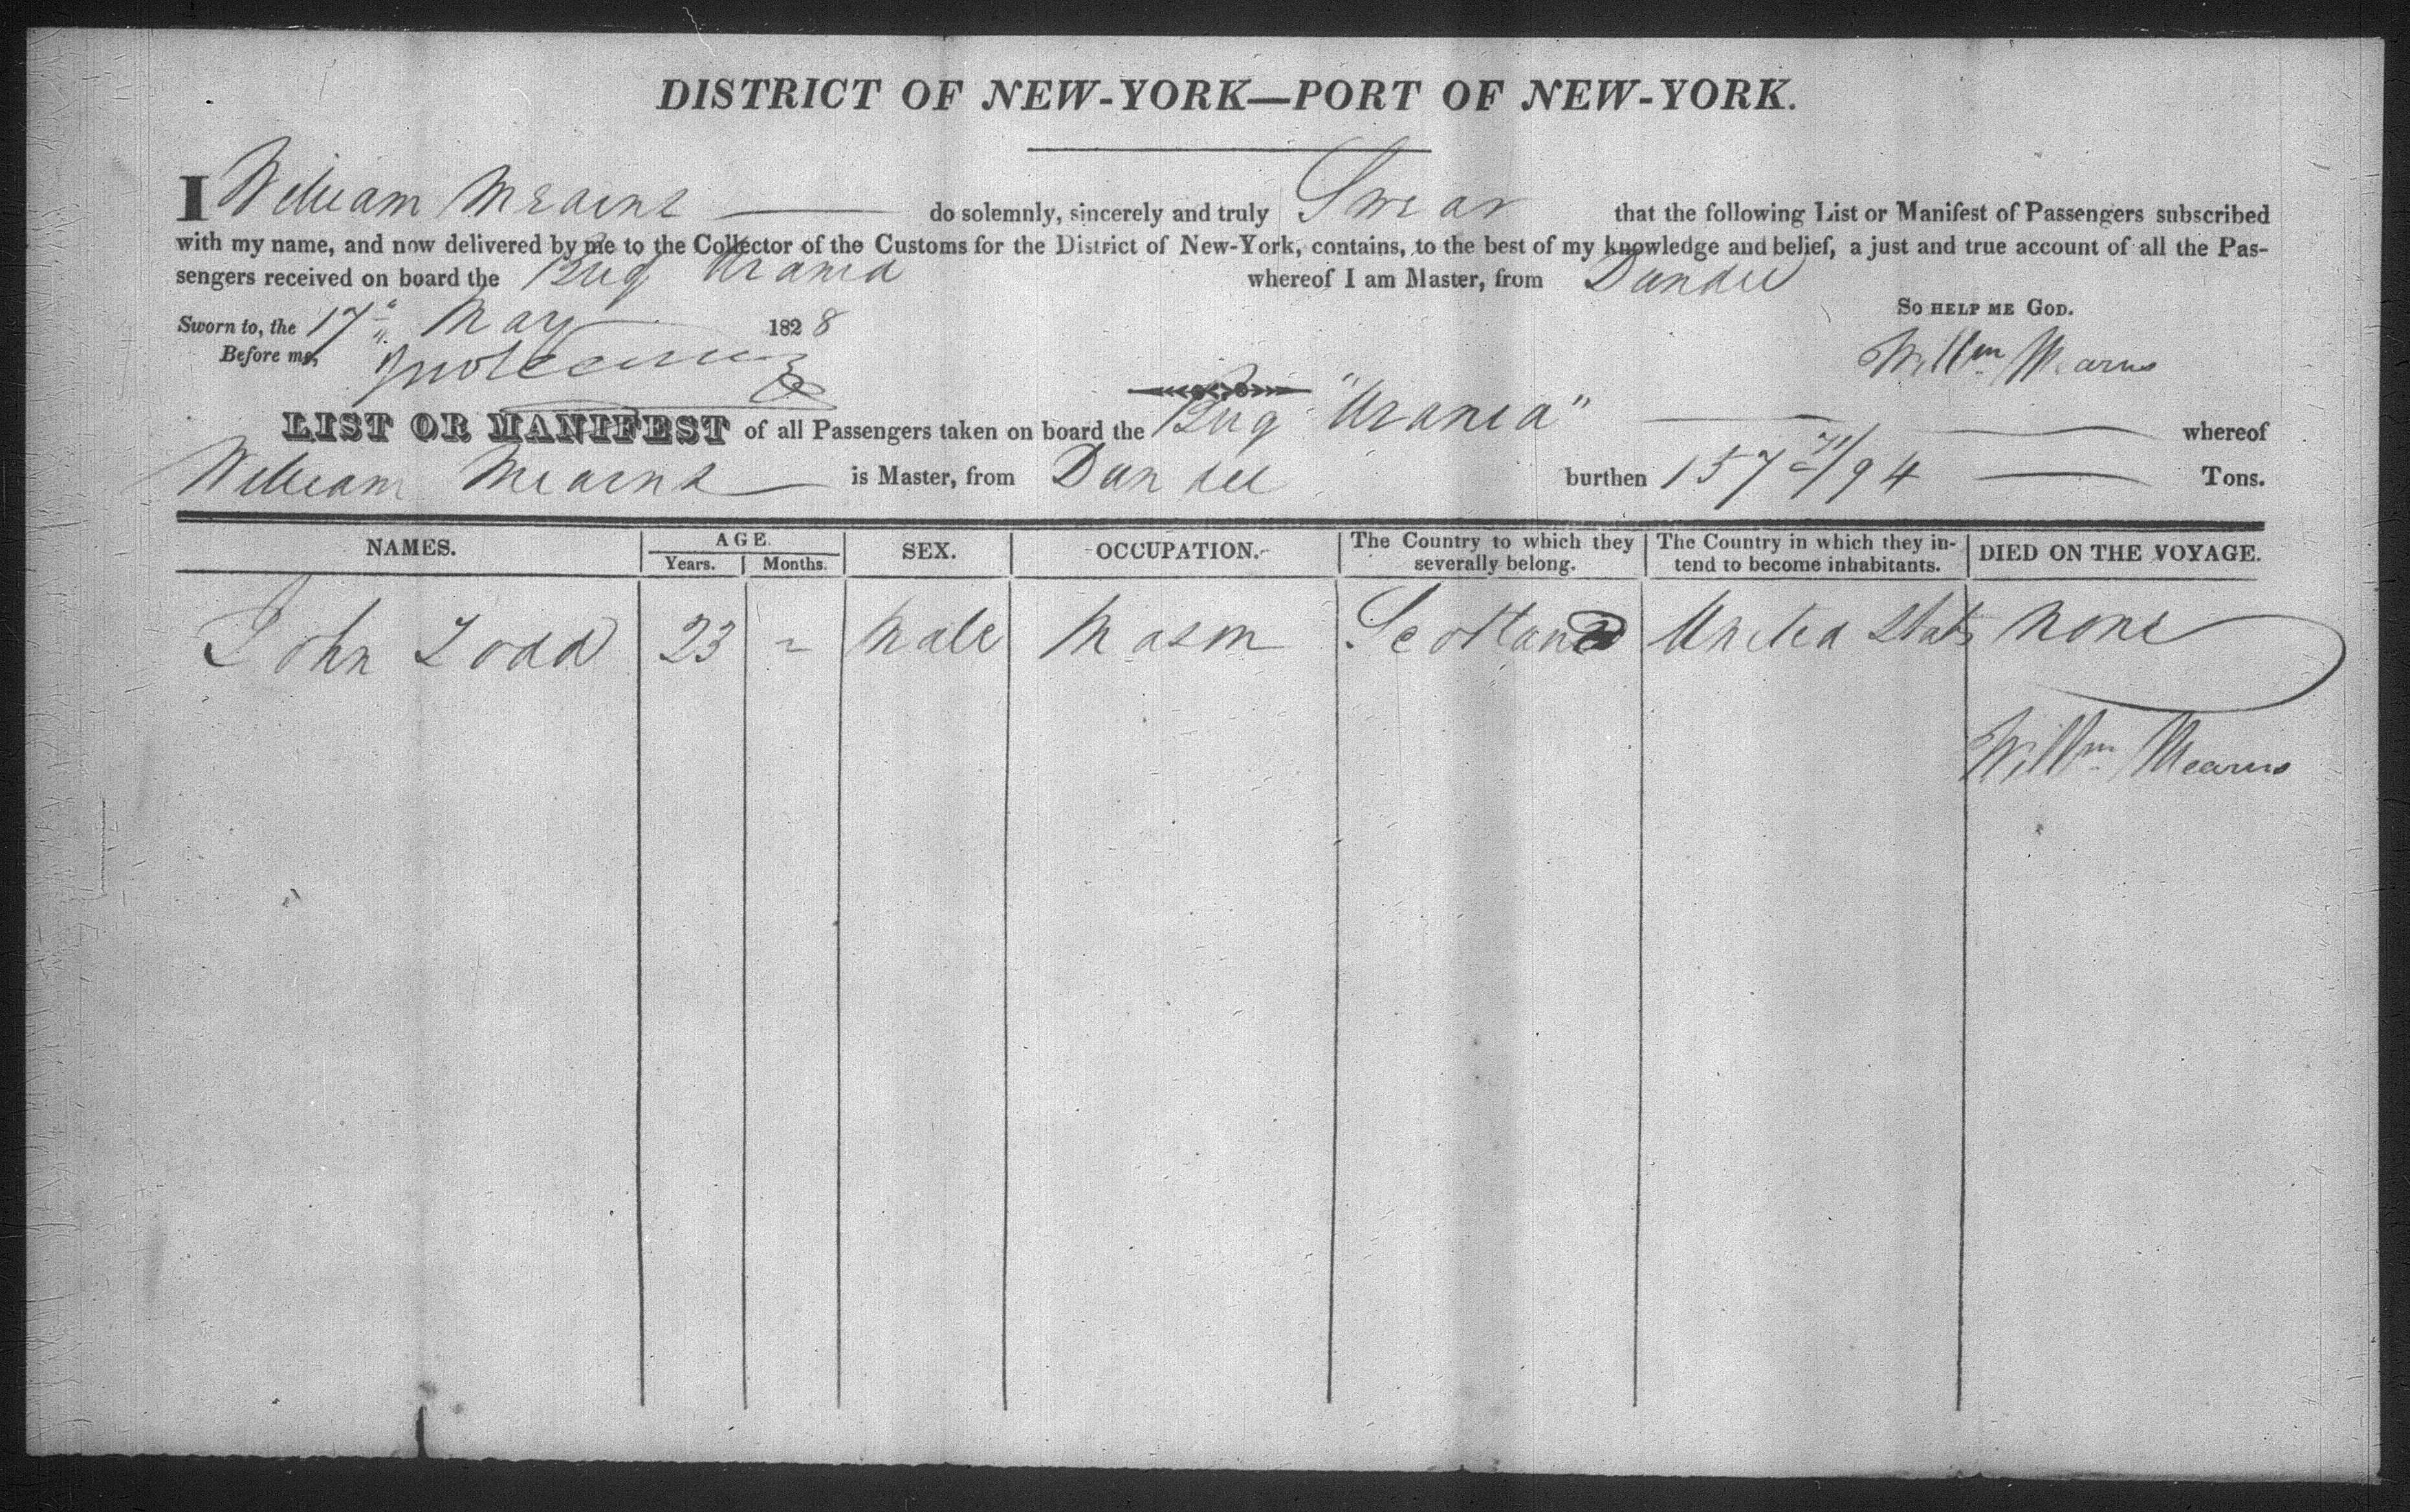 DISTRICT OF NEW-YORK—PORT OF NEW-YORK.
I William Mearns do solemnly, sincerely and truly Swear that the following List or Manifest of Passengers subscribed
with my name, and now delivered by me to the Collector of the Customs for the District of New-York, contains, to the best of my knowledge and belief, a just and true account of all the Pas-
sengers received on board the Brig Urania whereof I am Master, from Dundee
SO HELP ME GOD.
Sworn to, the 17th May 1828
Before me,
Willm Mearns
LIST OR MANIFEST of all Passengers taken on board the Brig "Urania" whereof
William Mearns is Master, from Dundee burthen 157 71/94 Tons.
NAMES. AGE. SEX. OCCUPATION. The Country to which they severally belong. The Country in which they in- tend to become inhabitants. DIED ON THE VOYAGE.
Years. Months.
John Todd 23 - Male Mason Scotland United States none
Willm Mearns